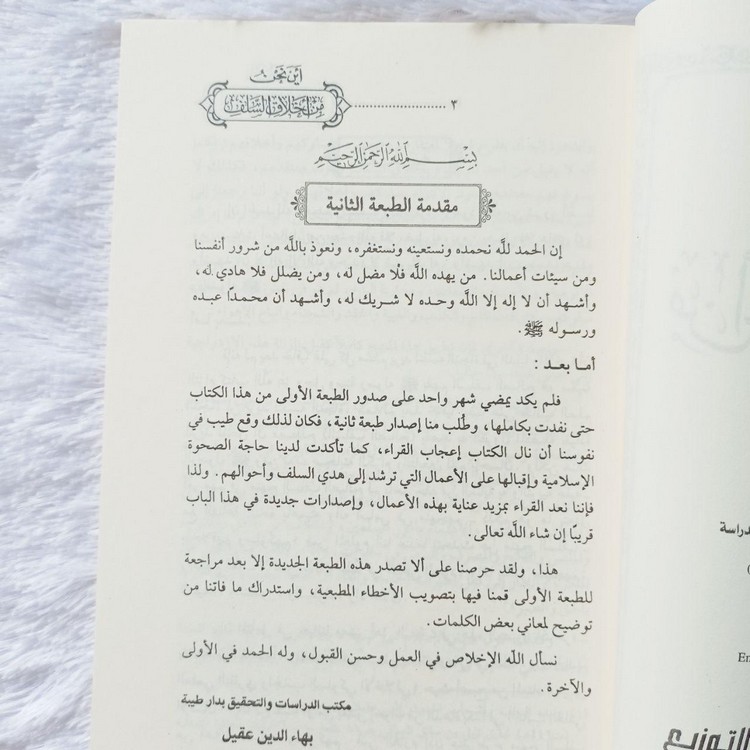 أين نحن
من أخلاق السلف
٣
بسم الله الرحمن الرحيم
مقدمة الطبعة الثانية
إن الحمد للَّه نحمده ونستعينه ونستغفره، ونعوذ باللَّه من شرور أنفسنا
ومن سيئات أعمالنا. من يهده اللَّه فلا مضل له، ومن يضلل فلا هادي له،
وأشهد أن لا إله إلا اللَّه وحده لا شريك له، وأشهد أن محمدًا عبده
ورسوله ﷺ.
أما بعد :
فلم يكد يمضي شهر واحد على صدور الطبعة الأولى من هذا الكتاب
حتى نفدت بكاملها، وطُلب منا إصدار طبعة ثانية، فكان لذلك وقع طيب في
نفوسنا أن نال الكتاب إعجاب القراء، كما تأكدت لدينا حاجة الصحوة
الإسلامية وإقبالها على الأعمال التي ترشد إلى هدي السلف وأحوالهم. ولذا
فإننا نعد القراء بمزيد عناية بهذه الأعمال، وإصدارات جديدة في هذا الباب
قريبًا إن شاء اللَّه تعالى.
هذا، ولقد حرصنا على ألا تصدر هذه الطبعة الجديدة إلا بعد مراجعة
للطبعة الأولى قمنا فيها بتصويب الأخطاء المطبعية، واستدراك ما فاتنا من
توضيح لمعاني بعض الكلمات.
نسأل اللَّه الإخلاص في العمل وحسن القبول، وله الحمد في الأولى
والآخرة.
مكتب الدراسات والتحقيق بدار طيبة
بهاء الدين عقيل
التوزيع